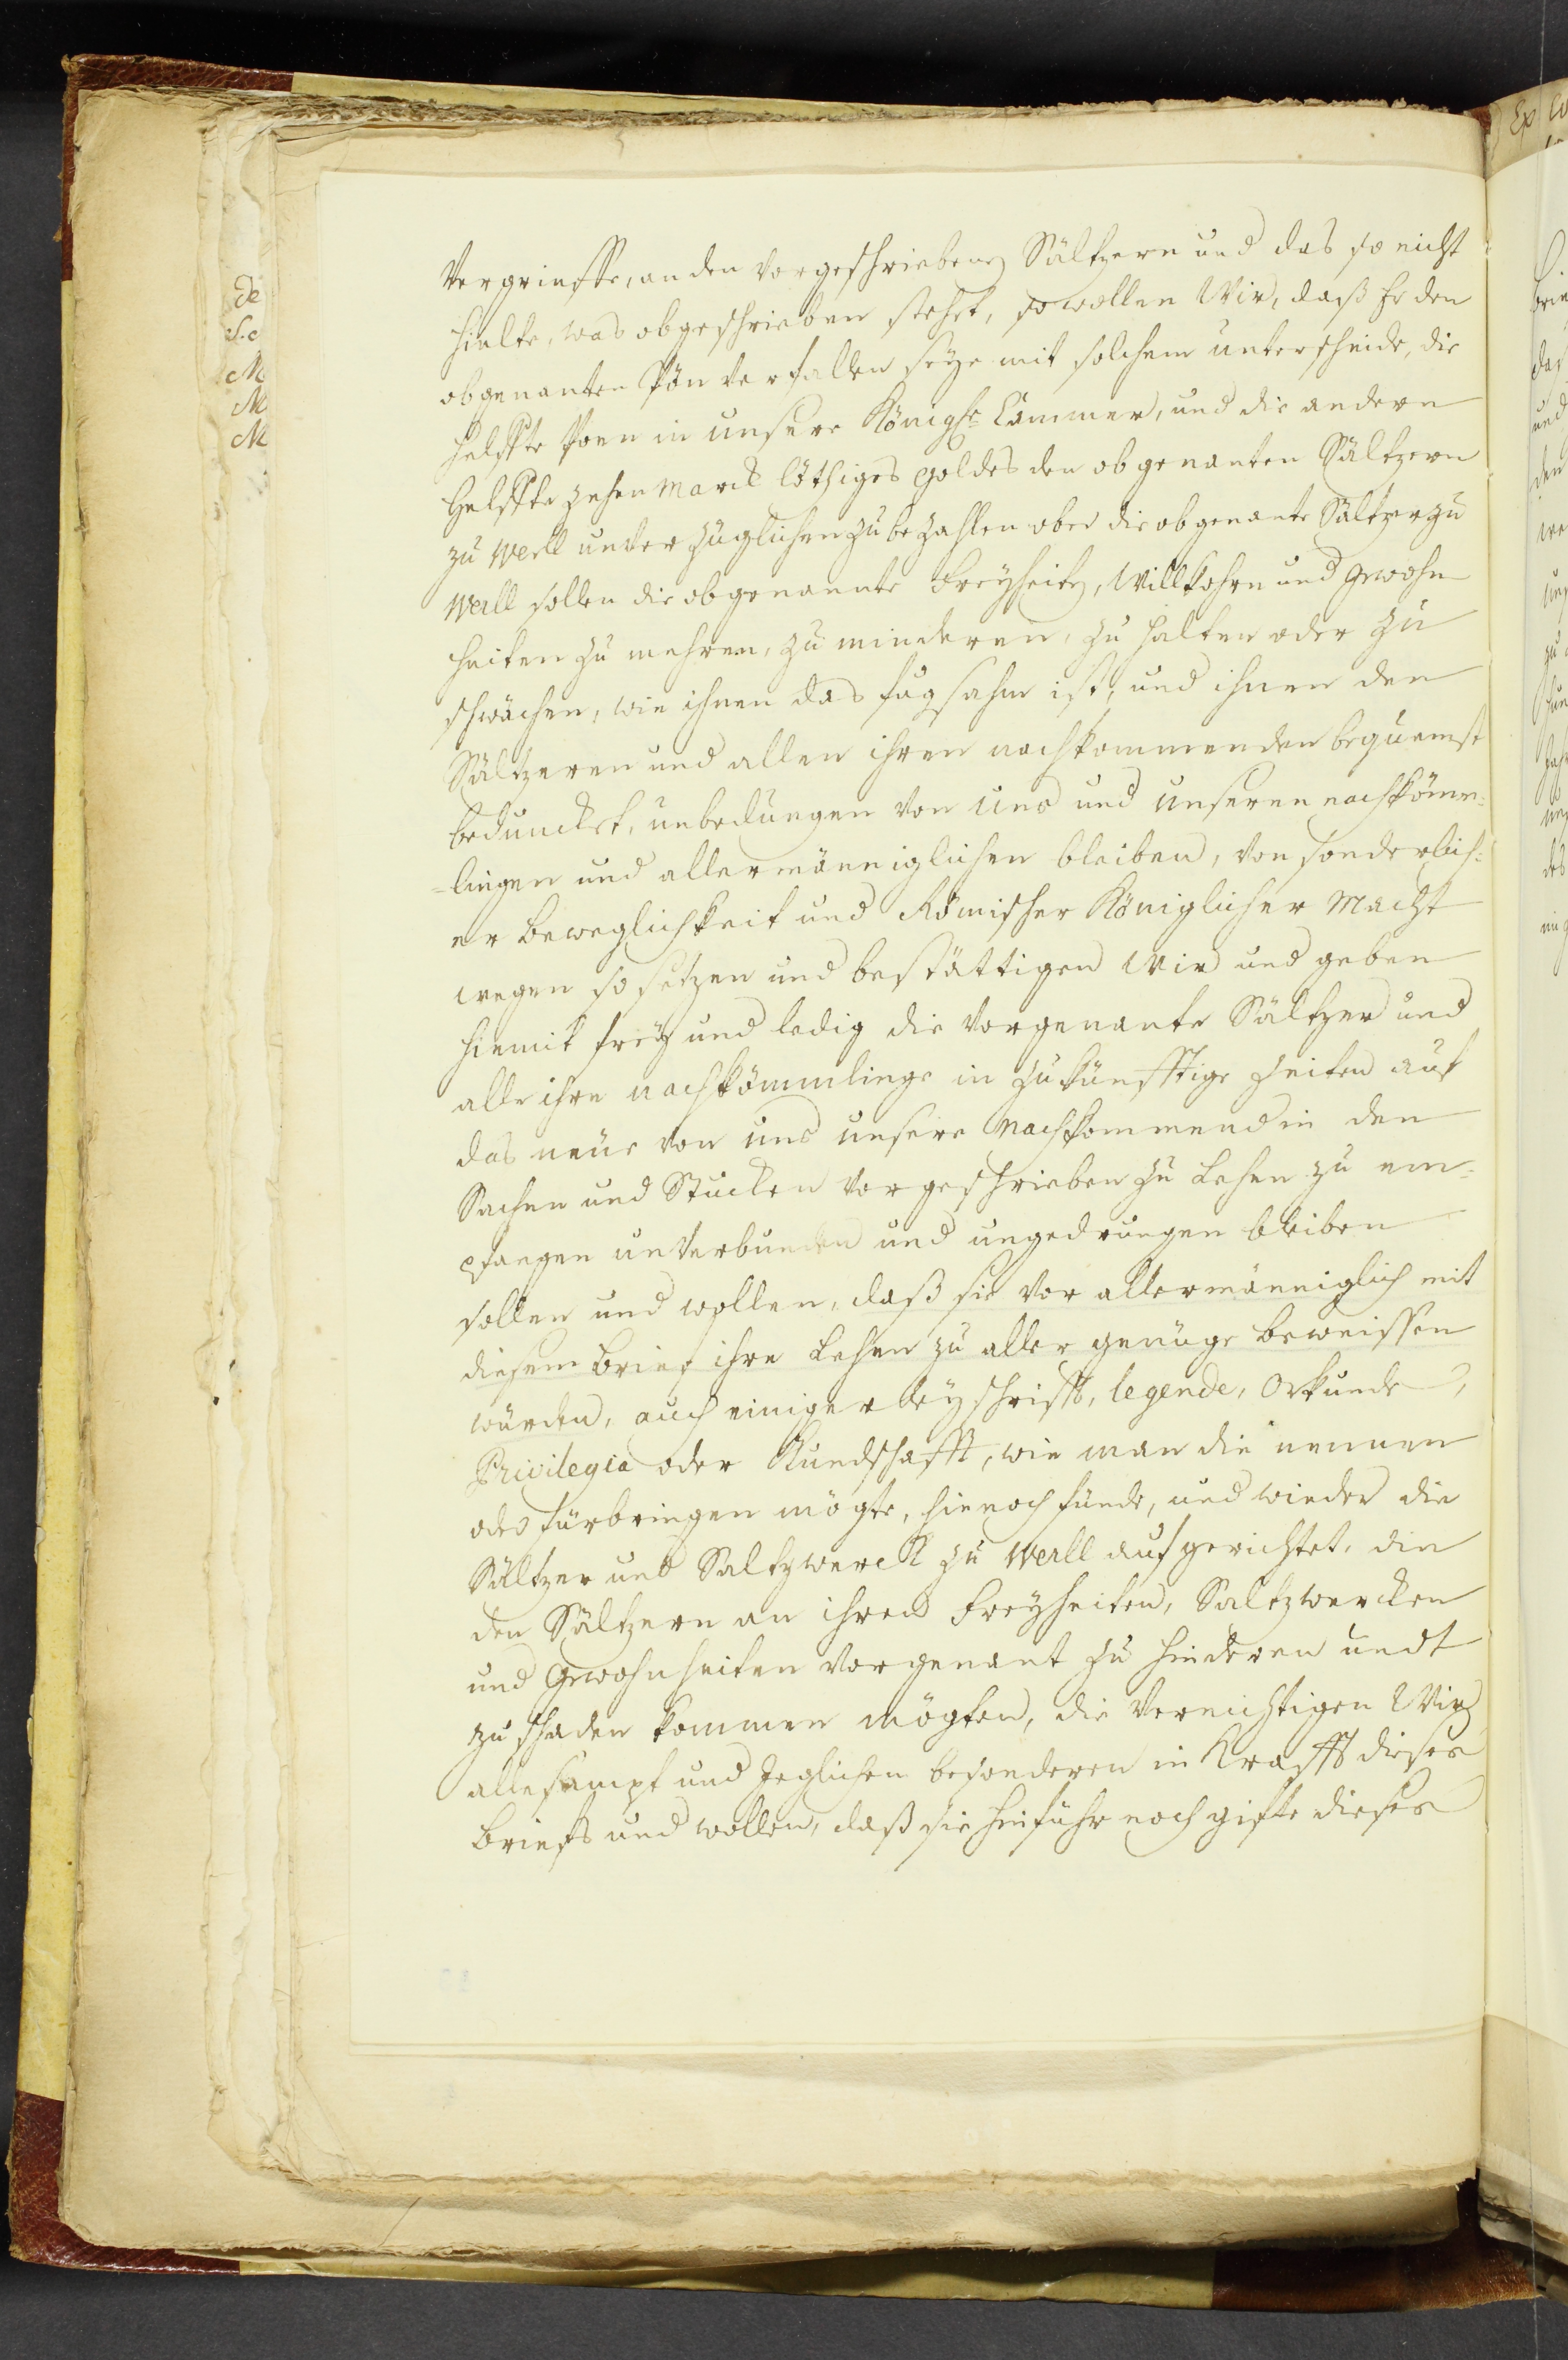 Vergrieffe, an den vorgeschriebenen Sältzeren und das so nicht
hielte, was obgeschrieben stehet, so wollen Wir, daß Er den
obgenanten Pön verfallen seye mit solchem unterscheide, die
helffte Poen in unsere Königl. Cammer, und die andern
Helffte zehen Marck löthiges goldes den obgenanten Sältzern
zu Werll unverzüglichen zu bezahlen aber die obgenante Sältzer zu
Werll sollen die obgenannte Freyheiten, Willkohrn und Gewohn
heiten zu mehren, zu minderen, zu halten oder zu
schwächen, wie ihnen das fugsahm ist, und ihnen den
Sältzeren und allen ihren nachkommenden bequemst
beduncket, unbedungen von Uns und Unseren nachkömm-
-lingen und allermänniglichen bleiben, von sonderlich-
er beweglichkeit und Römischer Königlicher Macht
wegen so setzen und bestättigen Wir und geben
hiemit frey und ledig die vorgenante Sältzer und
alle ihre nachkömmlinge in zukünfftige Zeiten auf
das neue von uns unsere Nachkommend in den
Sachen und Stucken vorgeschrieben zu Lehen zu em-
pfangen unverbunden und ungedrungen bleiben
sollen und wollen, daß sie vor allermänniglich mit
diesem brief ihre Lehen zu aller genüge beweissen
würden, auch einigerley schrifft, legende, Orkunde,
Privilegia oder Kundschafft, wie man die nennen
oder fürbringen mögte, hienoch fünde, und wieder die
Sältzer und Saltzwerck zu Werll aufgerichtet, die
den Sältzern an ihren Freyheiten, Saltzwercken
und Gewohnheiten vorgenant zu hinderen undt
zu schaden kommen mögten, die vernichtigen Wir
alle sampt und Jeglichen besonderen in Krafft dieses
briefs und wollen, daß sie hinführ noch gifte dieses